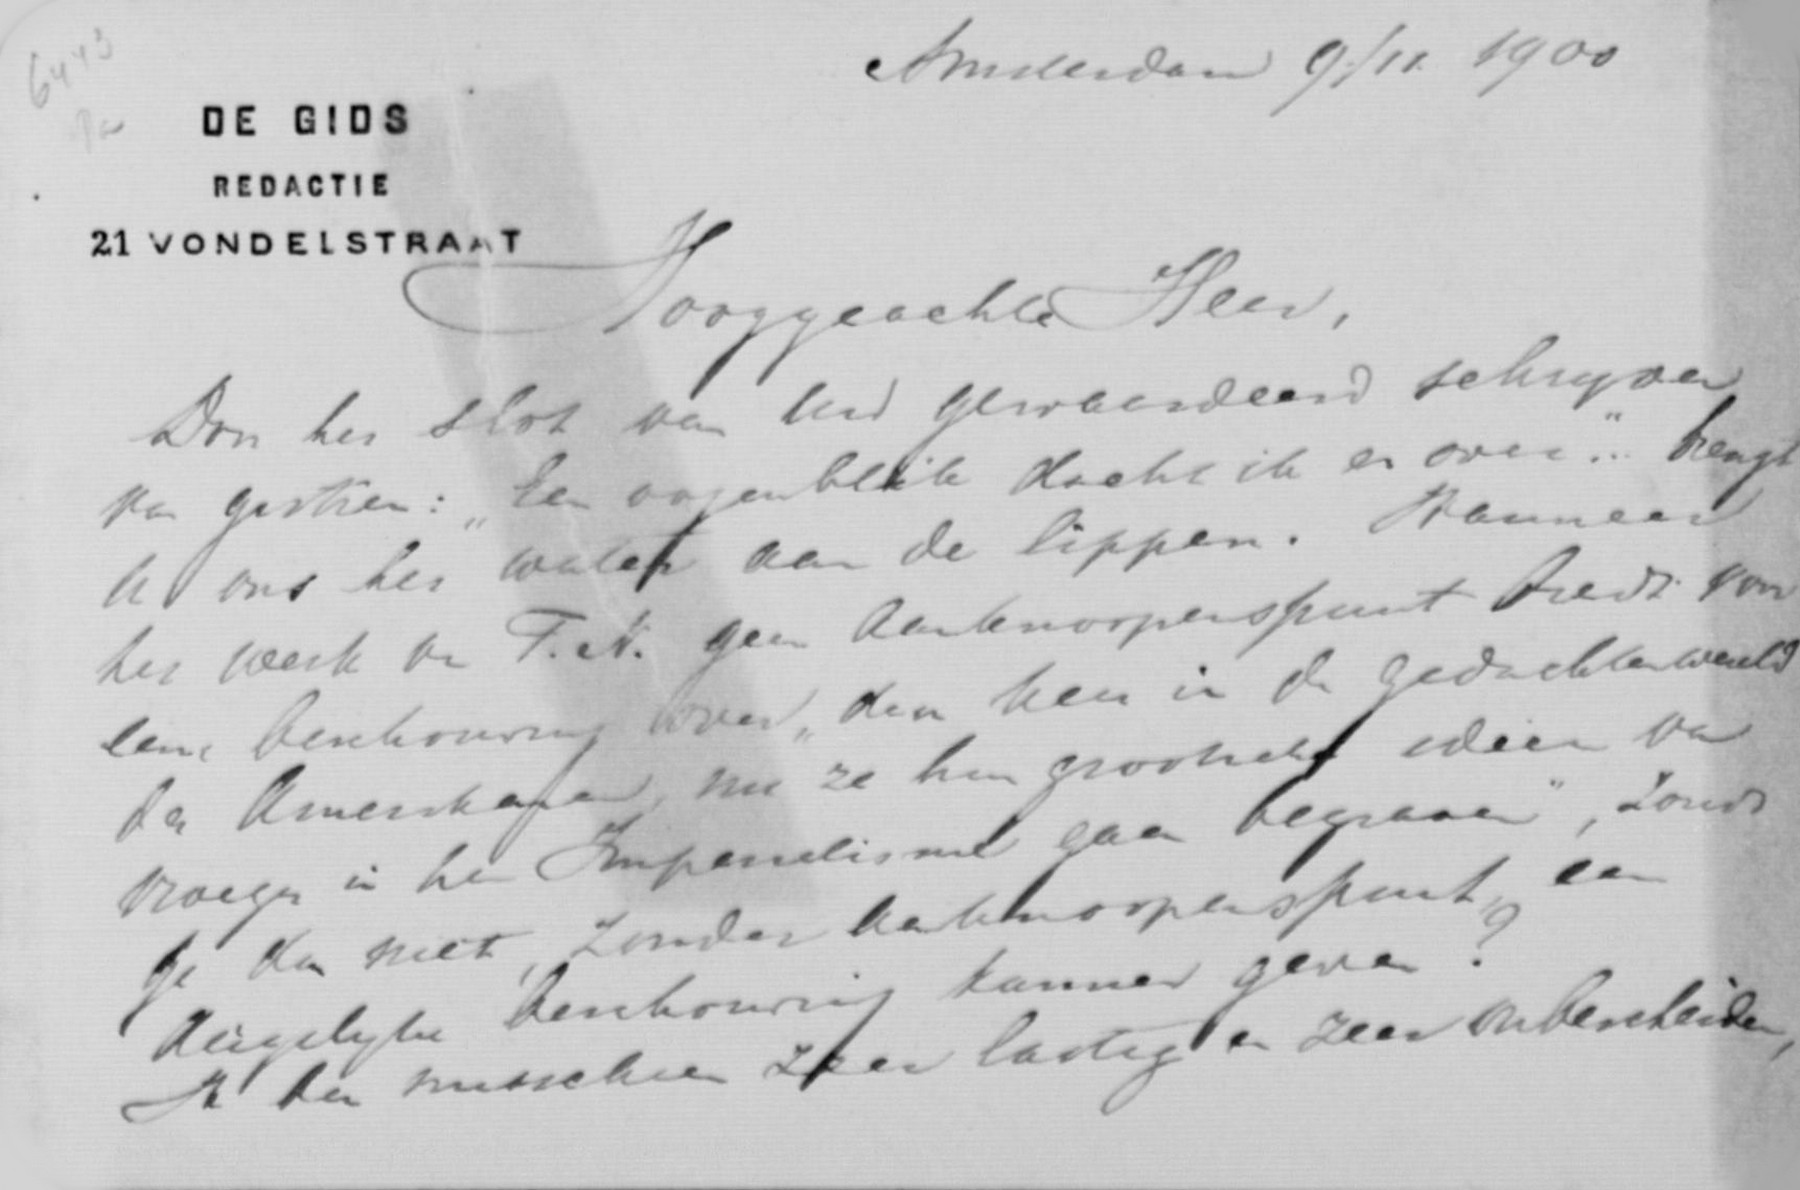 6443
Amsterdam 9/11. 1900
DE GIDS
REDACTIE
21 VONDELSTRAAT
Hooggeachte Heer,
Door het slot van Uw gewaardeerd schrijven
van gisteren: „Een oogenblik dacht ik er over..." brengt
U ons het water aan de lippen. Wanneer
het werk van T. N. geen aanknoopenspunt biedt voor
eene beschouwing over „den keer in de gedachtenwereld
der Amerikanen, nu ze hun grootsche ideeën van
vroeger in het Imperialisme gaan begraven", zoudt
ge dan niet, zonder aanknoopenspunt, een
dergelijke beschouwing kunnen geven?
Ik ben misschien zeer lastig en zeer onbescheiden,